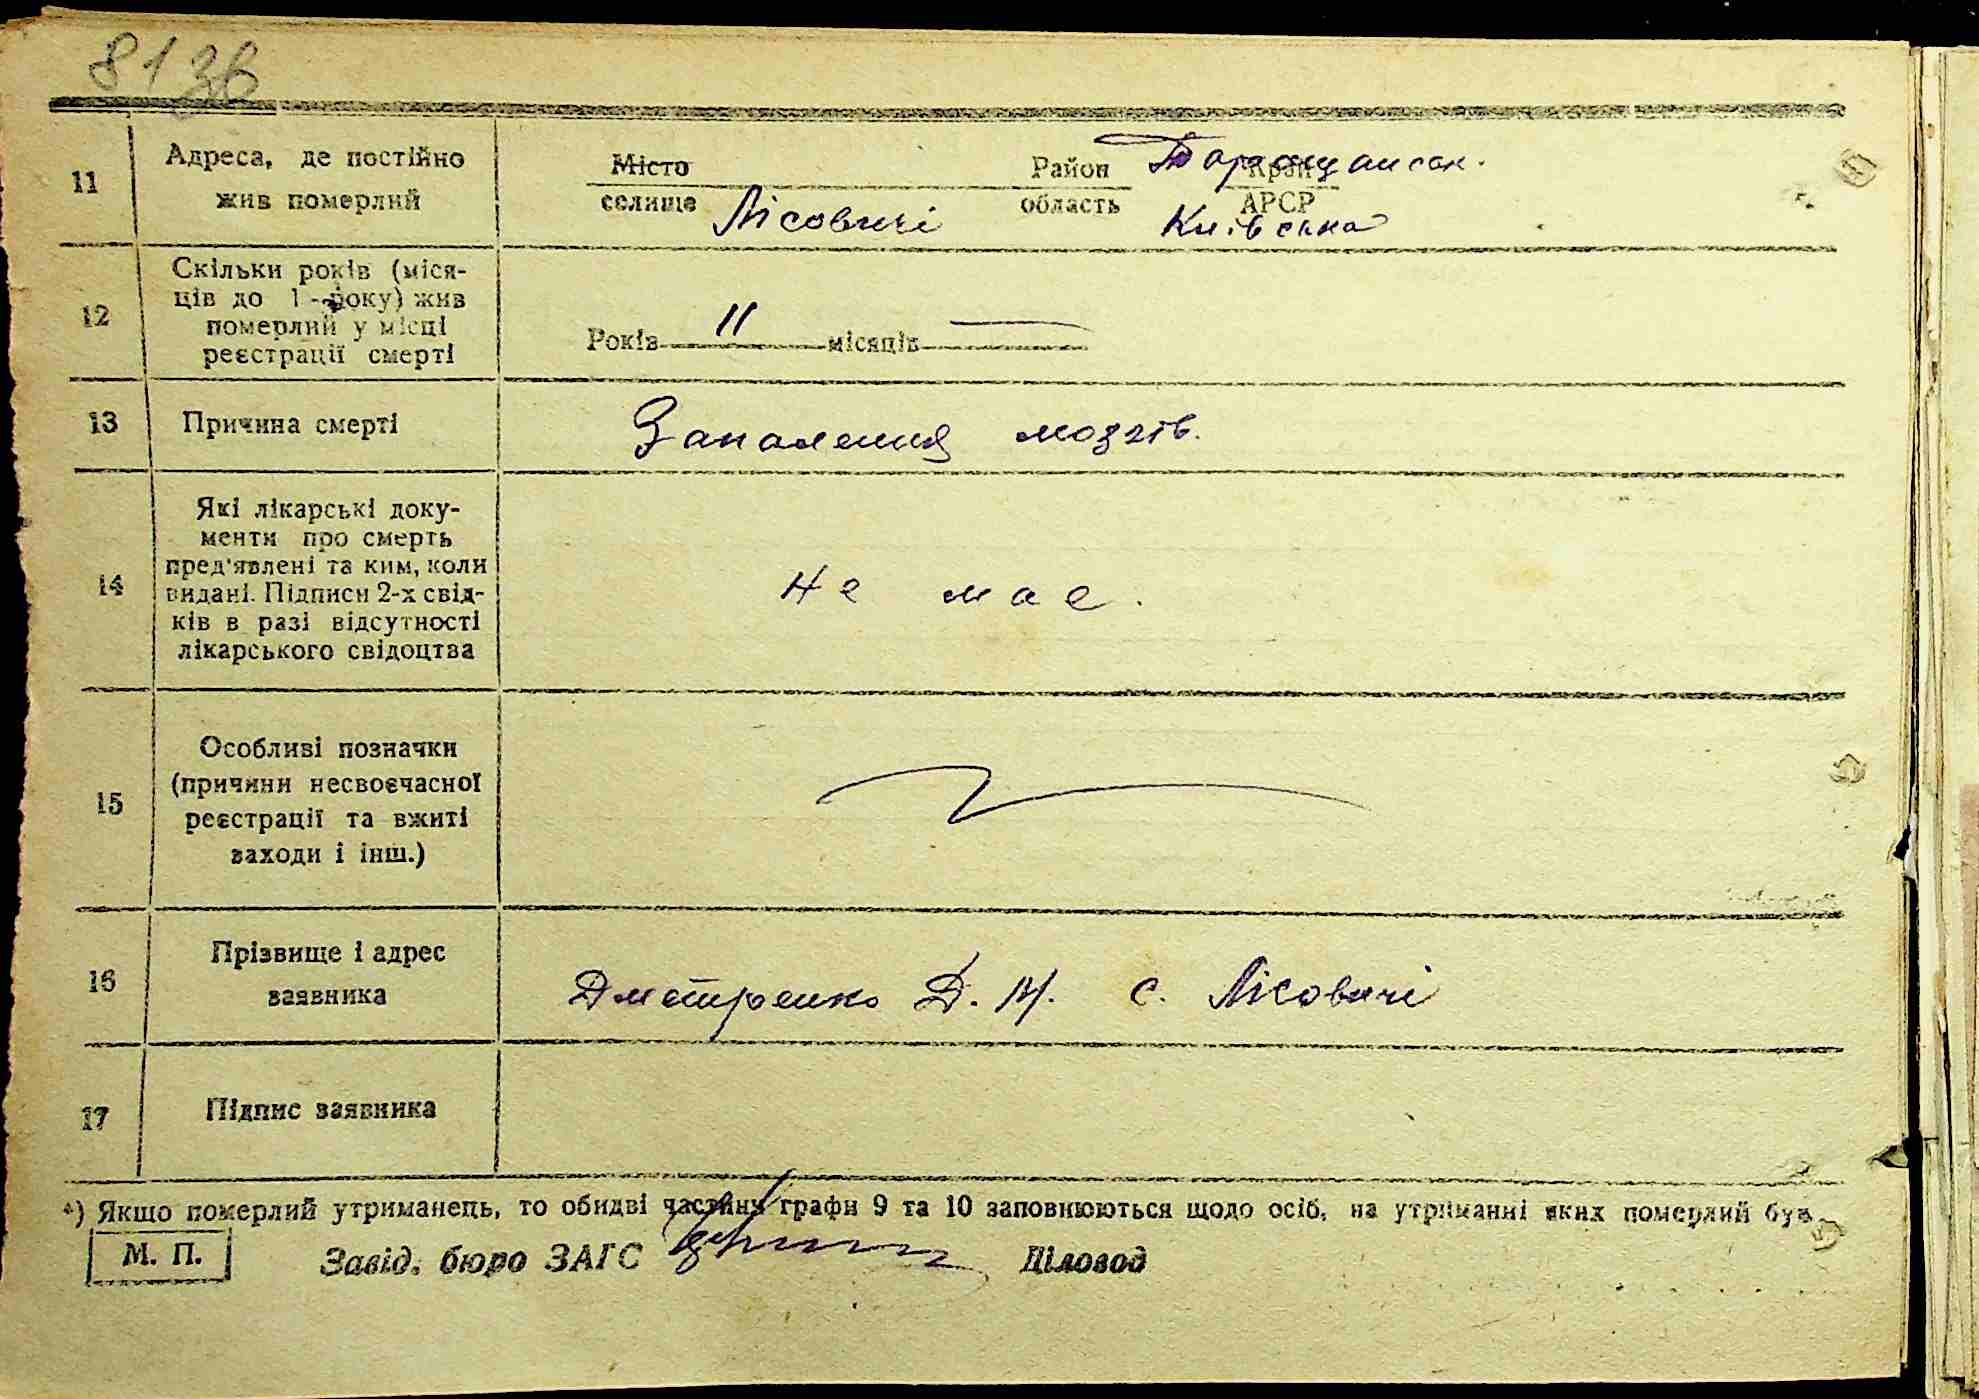 81 зв
11 Адреса, де постійно жив померлий
Місто Район Край Таращанськ.
селище Лісовичі область АРСР Київська
12 Скільки років (міся-
ців до 1-року) жив
померлий у місці
реєстрації смерті
Років 11 місяців —
13 Причина смерті Запалення мозгів.
14 Які лікарські доку-
менти про смерть
пред'явлені та ким, коли
видані. Підписи 2-х свід-
ків в разі відсутності
лікарського свідоцтва
не має.
15 Особливі позначки
(причини несвоєчасної
реєстрації та вжиті
заходи і інш.)
16 Прізвище і адрес
заявника
Дметренко Д. М. с. Лісовичі
17 Підпис заявника
*) Якщо померлий утриманець, то обидві частини графи 9 та 10 заповнюються щодо осіб, на утриманні яких померлий був.
М. П. Завід. бюро ЗАГС Діловод